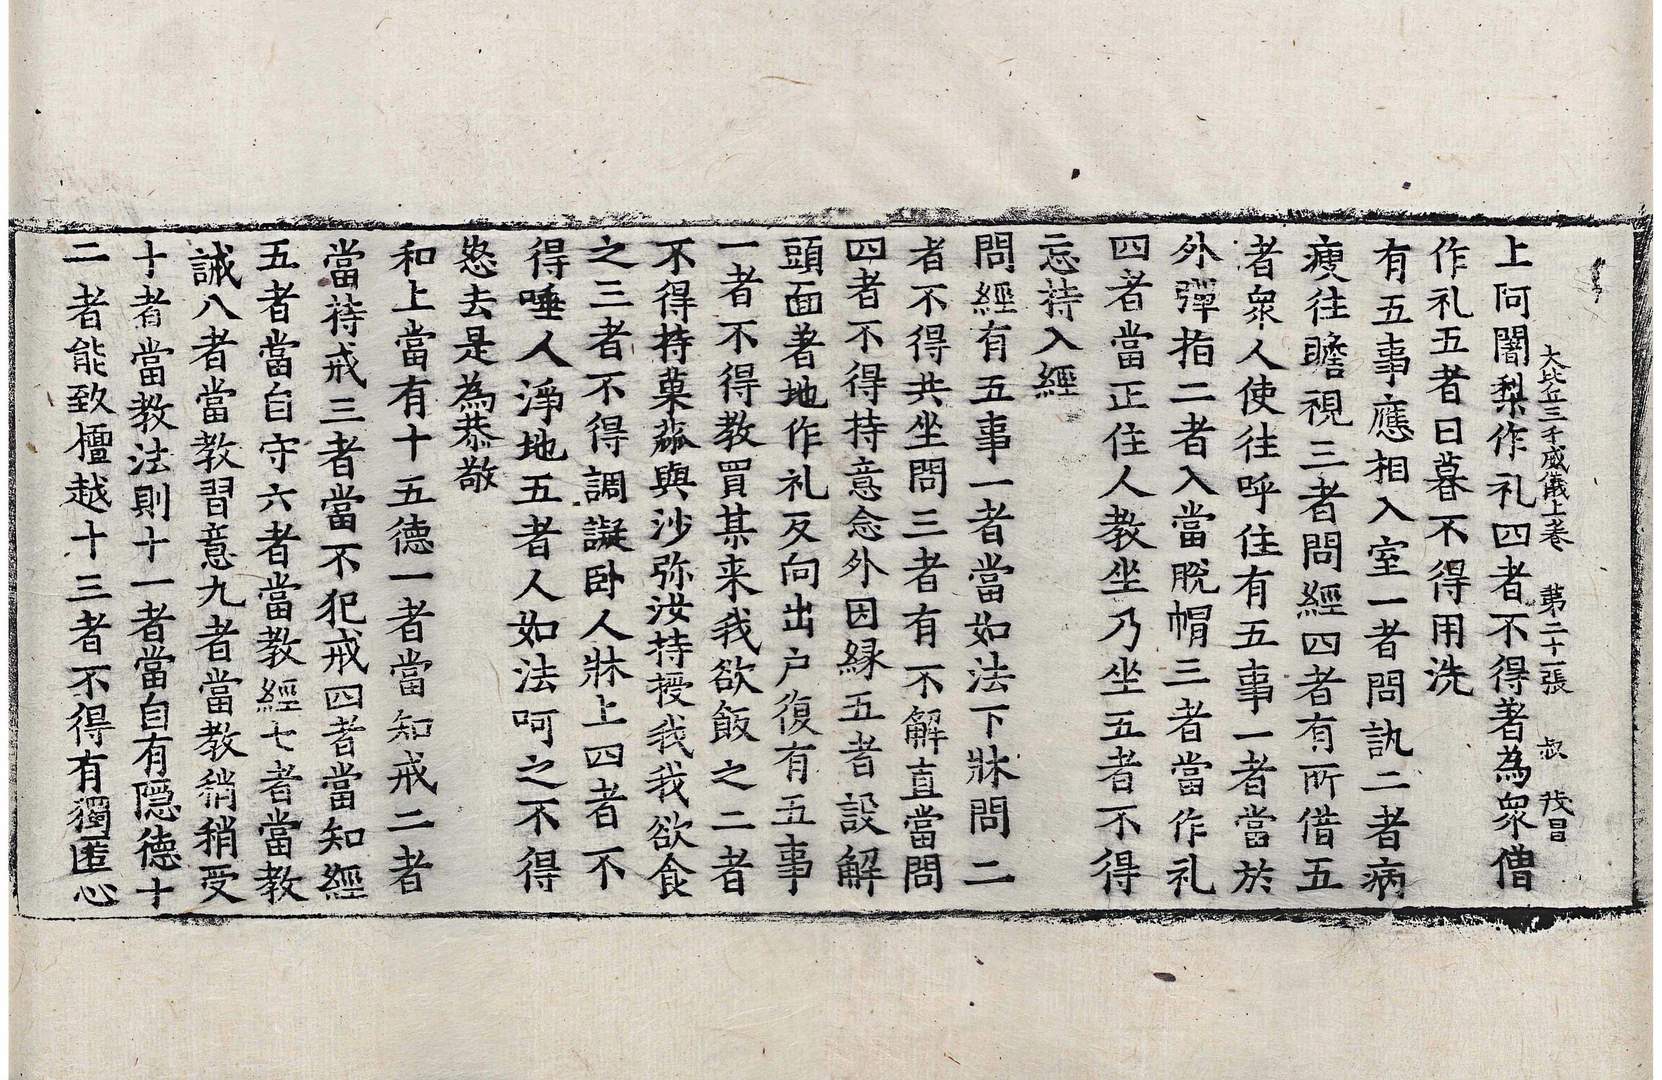 大比丘三千威儀上卷　第二十一張　叔　我昌
上阿闍梨作礼四者不得著為衆僧
作礼五者日暮不得用洗
有五事應相入室一者問訊二者病
瘦往瞻視三者問經四者有所借五
者衆人使往呼往有五事一者當於
外彈指二者入當脫帽三者當作礼
四者當正住人教坐乃坐五者不得
忘持入經
問經有五事一者當如法下牀問二
者不得共坐問三者有不解直當問
四者不得持意念外因緣五者設解
頭面著地作礼反向出户復有五事
一者不得教買某来我欲飯之二者
不得持菓蓏與沙弥汝持授我我欲食
之三者不得調譺卧人牀上四者不
得唾人淨地五者人如法呵之不得
恚去是為恭敬
和上當有十五德一者當知戒二者
當持戒三者當不犯戒四者當知經
五者當自守六者當教經七者當教
誡八者當教習意九者當教稍稍受
十者當教法則十一者當自有隱德十
二者能致檀越十三者不得有獨匿心